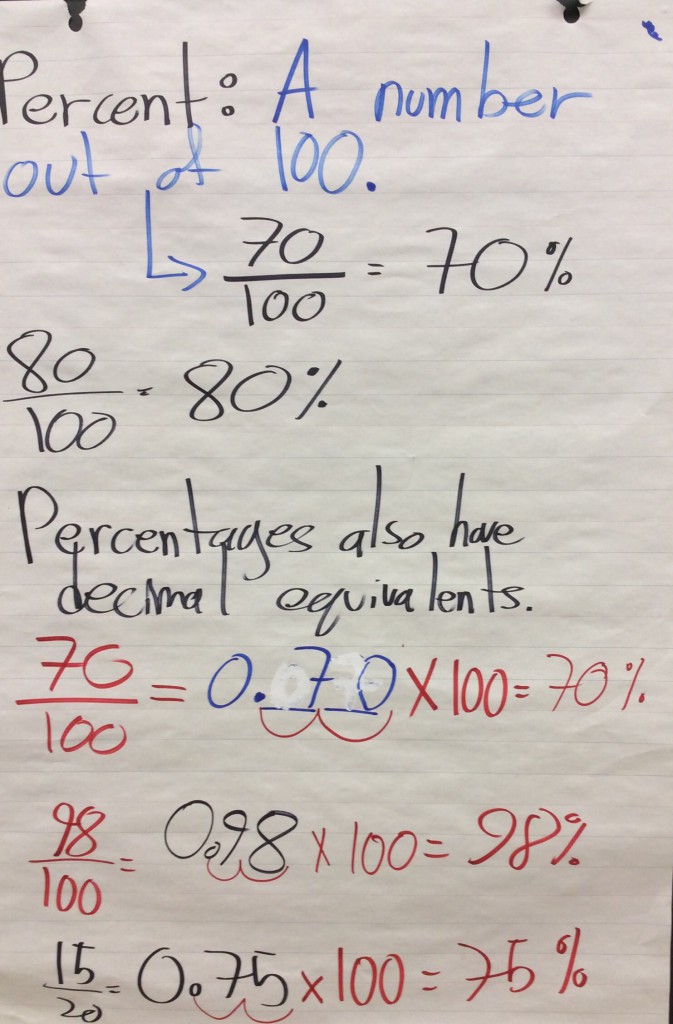 Percent: A number
out of 100.
70/100 = 70%
80/100 = 80%
Percentages also have
decimal equivalents.
70/100 = 0.70 x 100 = 70%
98/100 = 0.98 x 100 = 98%
15/20 = 0.75 x 100 = 75%